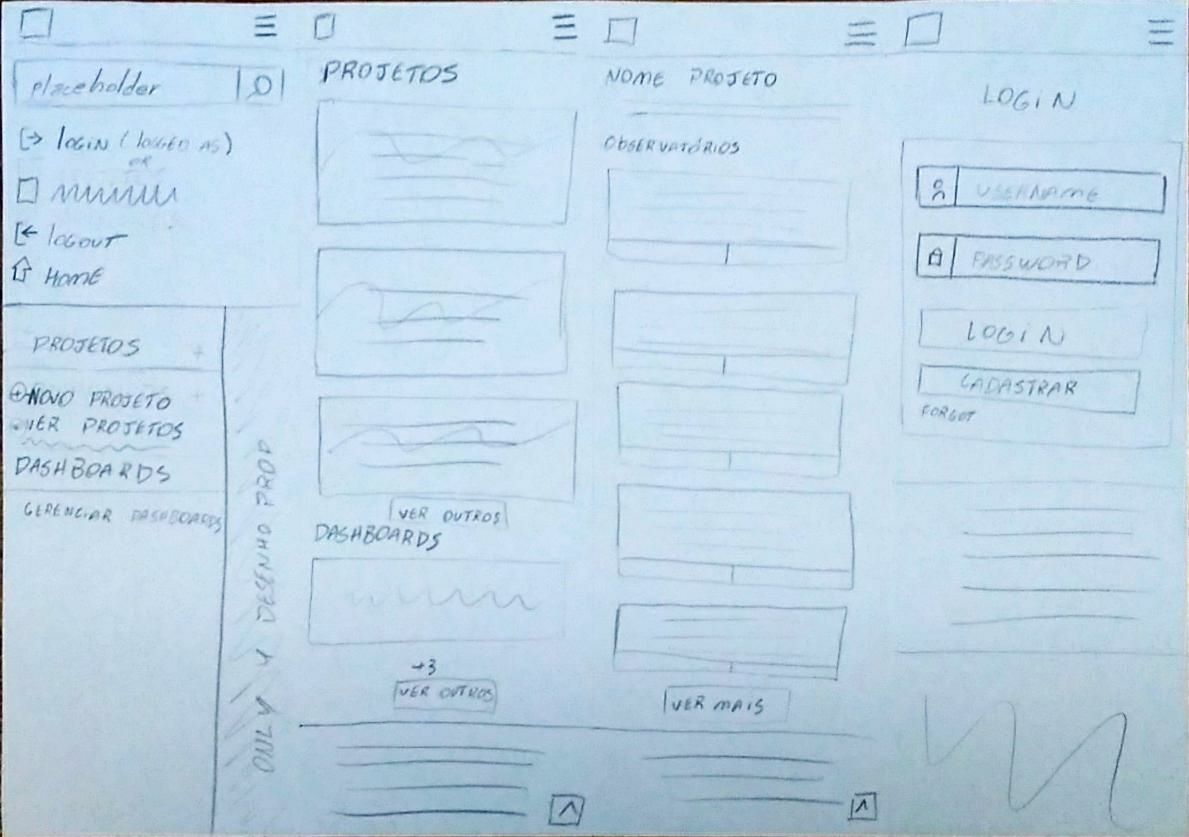 placeholder
LOGIN (LOGGED AS)
OR
LOGOUT
HOME
PROJETOS +
NOVO PROJETO +
VER PROJETOS
DASHBOARDS
GERENCIAR DASHBOARDS
ONLY 4 DESENHO PROD
PROJETOS
VER OUTROS
DASHBOARDS
+3
VER OUTROS
NOME PROJETO
OBSERVATÓRIOS
VER MAIS
LOGIN
USERNAME
PASSWORD
LOGIN
CADASTRAR
FORGOT